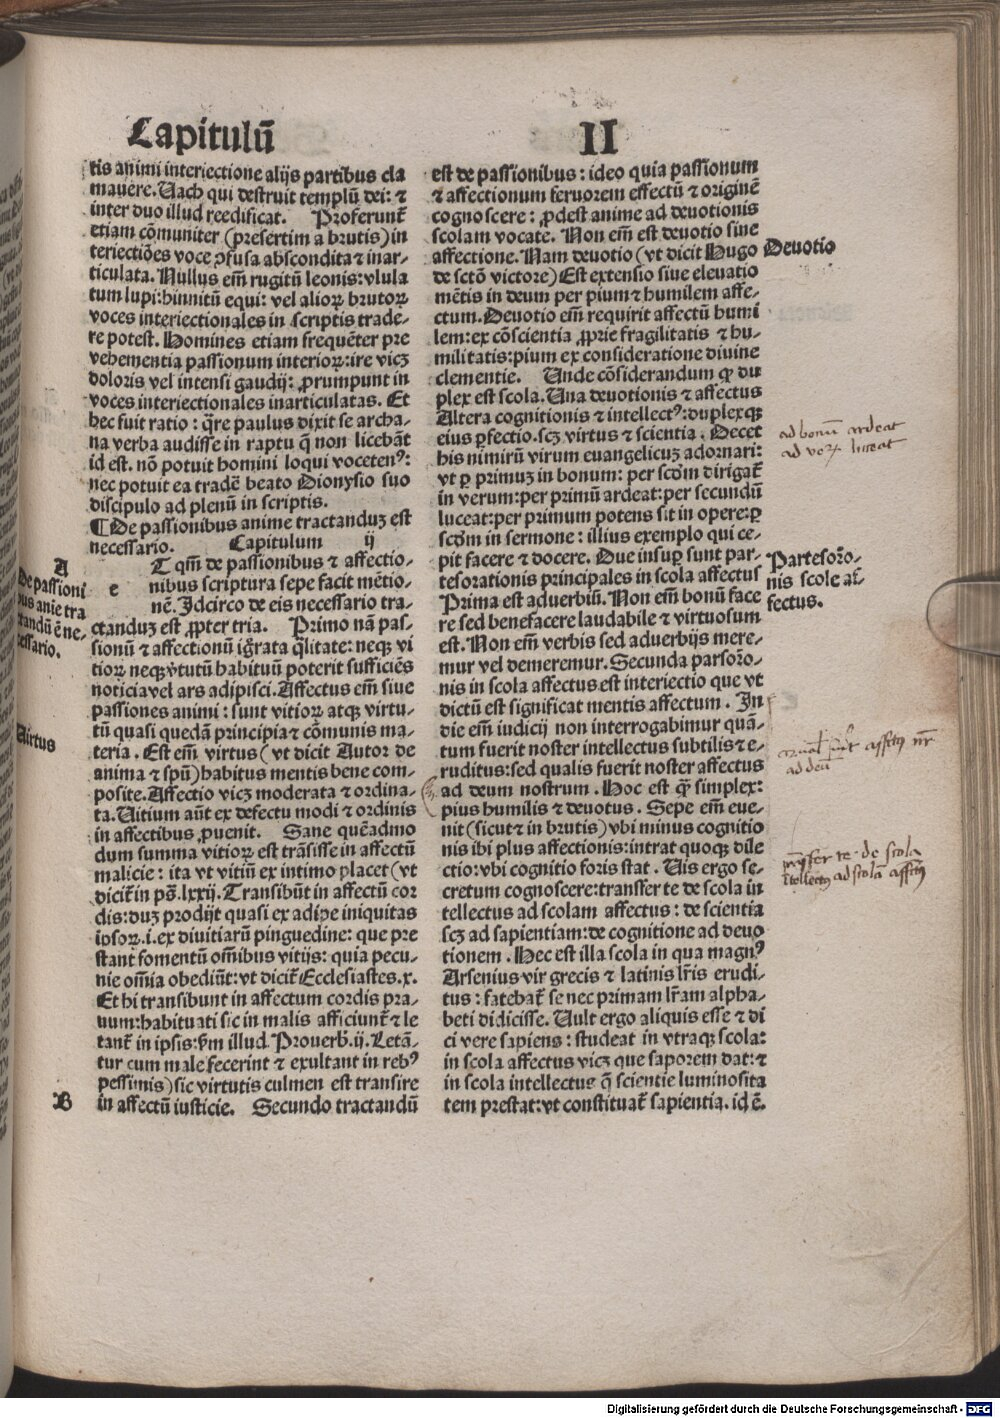 Capitulū
II
tis animi interiectione alijs partibus cla
mauere. Uach qui destruit templū dei: ⁊
inter duo illud reedificat. Proferunt̄
etiam cōmuniter (presertim a brutis) in
teriectiōes voce ꝓfusa abscondita ⁊ inar-
ticulata. Nullus em̄ rugitū leonis: vlula
tum lupi: hinnitū equi: vel alioꝝ brutoꝝ
voces interiectionales in scriptis trade-
re potest. Homines etiam frequēter pre
vehementia passionum interioꝝ: ire vicꝫ
doloris vel intensi gaudij: ꝓrumpunt in
voces interiectionales inarticulatas. Et
hec fuit ratio: q̄re paulus dixit se archa-
na verba audisse in raptu q̄ non licebāt
id est. nō potuit homini loqui voceten⁹:
nec potuit ea tradē beato Dionysio suo
discipulo ad plenū in scriptis.
¶ De passionibus anime tractanduꝫ est
necessario. Capitulum ij
A
De passioni
bus anīe tra
ctandū ē ne-
cessario.
e
T qm̄ de passionibus ⁊ affectio-
nibus scriptura sepe facit mētio-
nē. Idcirco de eis necessario tra-
ctanduꝫ est ꝓpter tria. Primo nā pas-
sionū ⁊ affectionū igr̄ata q̄litate: neqꝫ vi
tioꝝ neqꝫ v̄tutū habituū poterit sufficiēs
noticia vel ars adipisci. Affectus em̄ siue
passiones animi: sunt vitioꝝ atqꝫ virtu-
tū quasi quedā principia ⁊ cōmunis ma-
teria. Est em̄ virtus (vt dicit Autor de
Virtus
anima ⁊ spū) habitus mentis bene com-
posite. Affectio vicꝫ moderata ⁊ ordina-
ta. Uitium aūt ex defectu modi ⁊ ordinis
in affectibus ꝓuenit. Sane quēadmo
dum summa vitioꝝ est trāsisse in affectū
malicie: ita vt vitiū ex intimo placet (vt
dicit̄ in pṡ. lxxij. Transibūt in affectū cor
dis: duꝫ prodijt quasi ex adipe iniquitas
ipsoꝝ. i. ex diuitiarū pinguedine: que pre
stant fomentū om̄ibus vitijs: quia pecu-
nie om̄ia obediūt: vt dicit̄ Ecclesiastes. x.
Et hi transibunt in affectum cordis pra-
uum: habituati sic in malis afficiunt̄ ⁊ le
tant̄ in ipsis: ẜm illud. Prouerb. ij. Letā-
tur cum male fecerint ⁊ exultant in reb⁹
pessimis) sic virtutis culmen est transire
B
in affectū iusticie. Secundo tractandū
est de passionibus: ideo quia passionum
⁊ affectionum feruorem effectū ⁊ originē
cognoscere: ꝓdest anime ad deuotionis
scolam vocate. Non em̄ est deuotio sine
affectione. Nam deuotio (vt dicit Hugo
Deuotio
de sctō victore) Est extensio siue eleuatio
mētis in deum per pium ⁊ humilem affe-
ctum. Deuotio em̄ requirit affectū humi
lem: ex cōscientia ꝓprie fragilitatis ⁊ hu-
militatis: pium ex consideratione diuine
clementie. Unde cōsiderandum ꝙ du
plex est scola. Una deuotionis ⁊ affectus
Altera cognitionis ⁊ intellect⁹: duplexqꝫ
eius ꝑfectio. scꝫ virtus ⁊ scientia. Decet
his nimirū virum euangelicuꝫ adornari:
vt ꝑ primuꝫ in bonum: per scd̄m dirigat̄
in verum: per primū ardeat: per secundū
luceat: per primum potens sit in opere: ꝑ
scd̄m in sermone: illius exemplo qui ce-
ad bonū ardeat
ad veꝝ luceat
pit facere ⁊ docere. Due insuꝑ sunt par-
tesorationis principales in scola affectus
Partesorō-
nis scole af-
fectus.
Prima est aduerbiū. Non em̄ bonū face
re sed benefacere laudabile ⁊ virtuosum
est. Non em̄ verbis sed aduerbijs mere-
mur vel demeremur. Secunda parsorō-
nis in scola affectus est interiectio que vt
dictū est significat mentis affectum. In
die em̄ iudicij non interrogabimur quā-
tum fuerit noster intellectus subtilis ⁊ e-
ruditus: sed qualis fuerit noster affectus
ad deum nostrum. Hoc est ꝙ simplex:
ad deū
pius humilis ⁊ deuotus. Sepe em̄ eue-
nit (sicut ⁊ in brutis) vbi minus cognitio
nis ibi plus affectionis: intrat quoqꝫ dile
ctio: vbi cognitio foris stat. Uis ergo se-
cretum cognoscere: transfer te de scola in
tellectus ad scolam affectus: de scientia
transfer te de scola
ītellectꝰ ad scolā affectꝰ
scꝫ ad sapientiam: de cognitione ad deuo
tionem. Hec est illa scola in qua magn⁹
Arsenius vir grecis ⁊ latinis lr̄is erudi-
tus: fatebat̄ se nec primam lr̄am alpha-
beti didicisse. Uult ergo aliquis esse ⁊ di
ci vere sapiens: studeat in vtraqꝫ scola:
in scola affectus vicꝫ que saporem dat: ⁊
in scola intellectus q̄ scientie luminosita
tem prestat: vt constituat̄ sapientia. id ē.
Digitalisierung gefördert durch die Deutsche Forschungsgemeinschaft - DFG